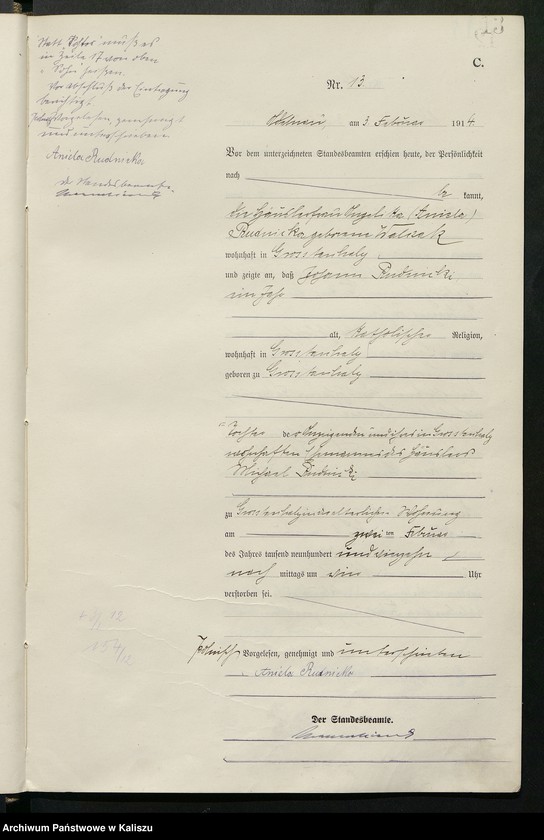 Statt „Tochter" muß es
in Zeile 17 von oben
„Sohn" heißen.
Vor Abschluß der Eintragung
berichtigt
vorgelesen genehmigt
und unterschrieben
Aniela Rudnicka
der Standesbeamte.
C.
Nr. 13
am 3. Februar 1914
Vor dem unterzeichneten Standesbeamten erschien heute, der Persönlichkeit
nach
be kannt,
die Häuslerfrau Angelika (Aniela)
Rudnicka geborene
wohnhaft in
und zeigte an, daß Johann Rudnicki
ein Jahr
alt, katholischer Religion,
wohnhaft in
geboren zu
Tochter der Anzeigenden und ihres in
wohnhaften Ehemannes des Häuslers
Michael Rudnicki
zu in der elterlichen Wohnung
am zweiten Februar
des Jahres tausend neunhundert und vierzehn
nach mittags um ein Uhr
verstorben sei.
Polnisch Vorgelesen, genehmigt und unterschrieben
Aniela Rudnicka
Der Standesbeamte.
Archiwum Państwowe w Kaliszu